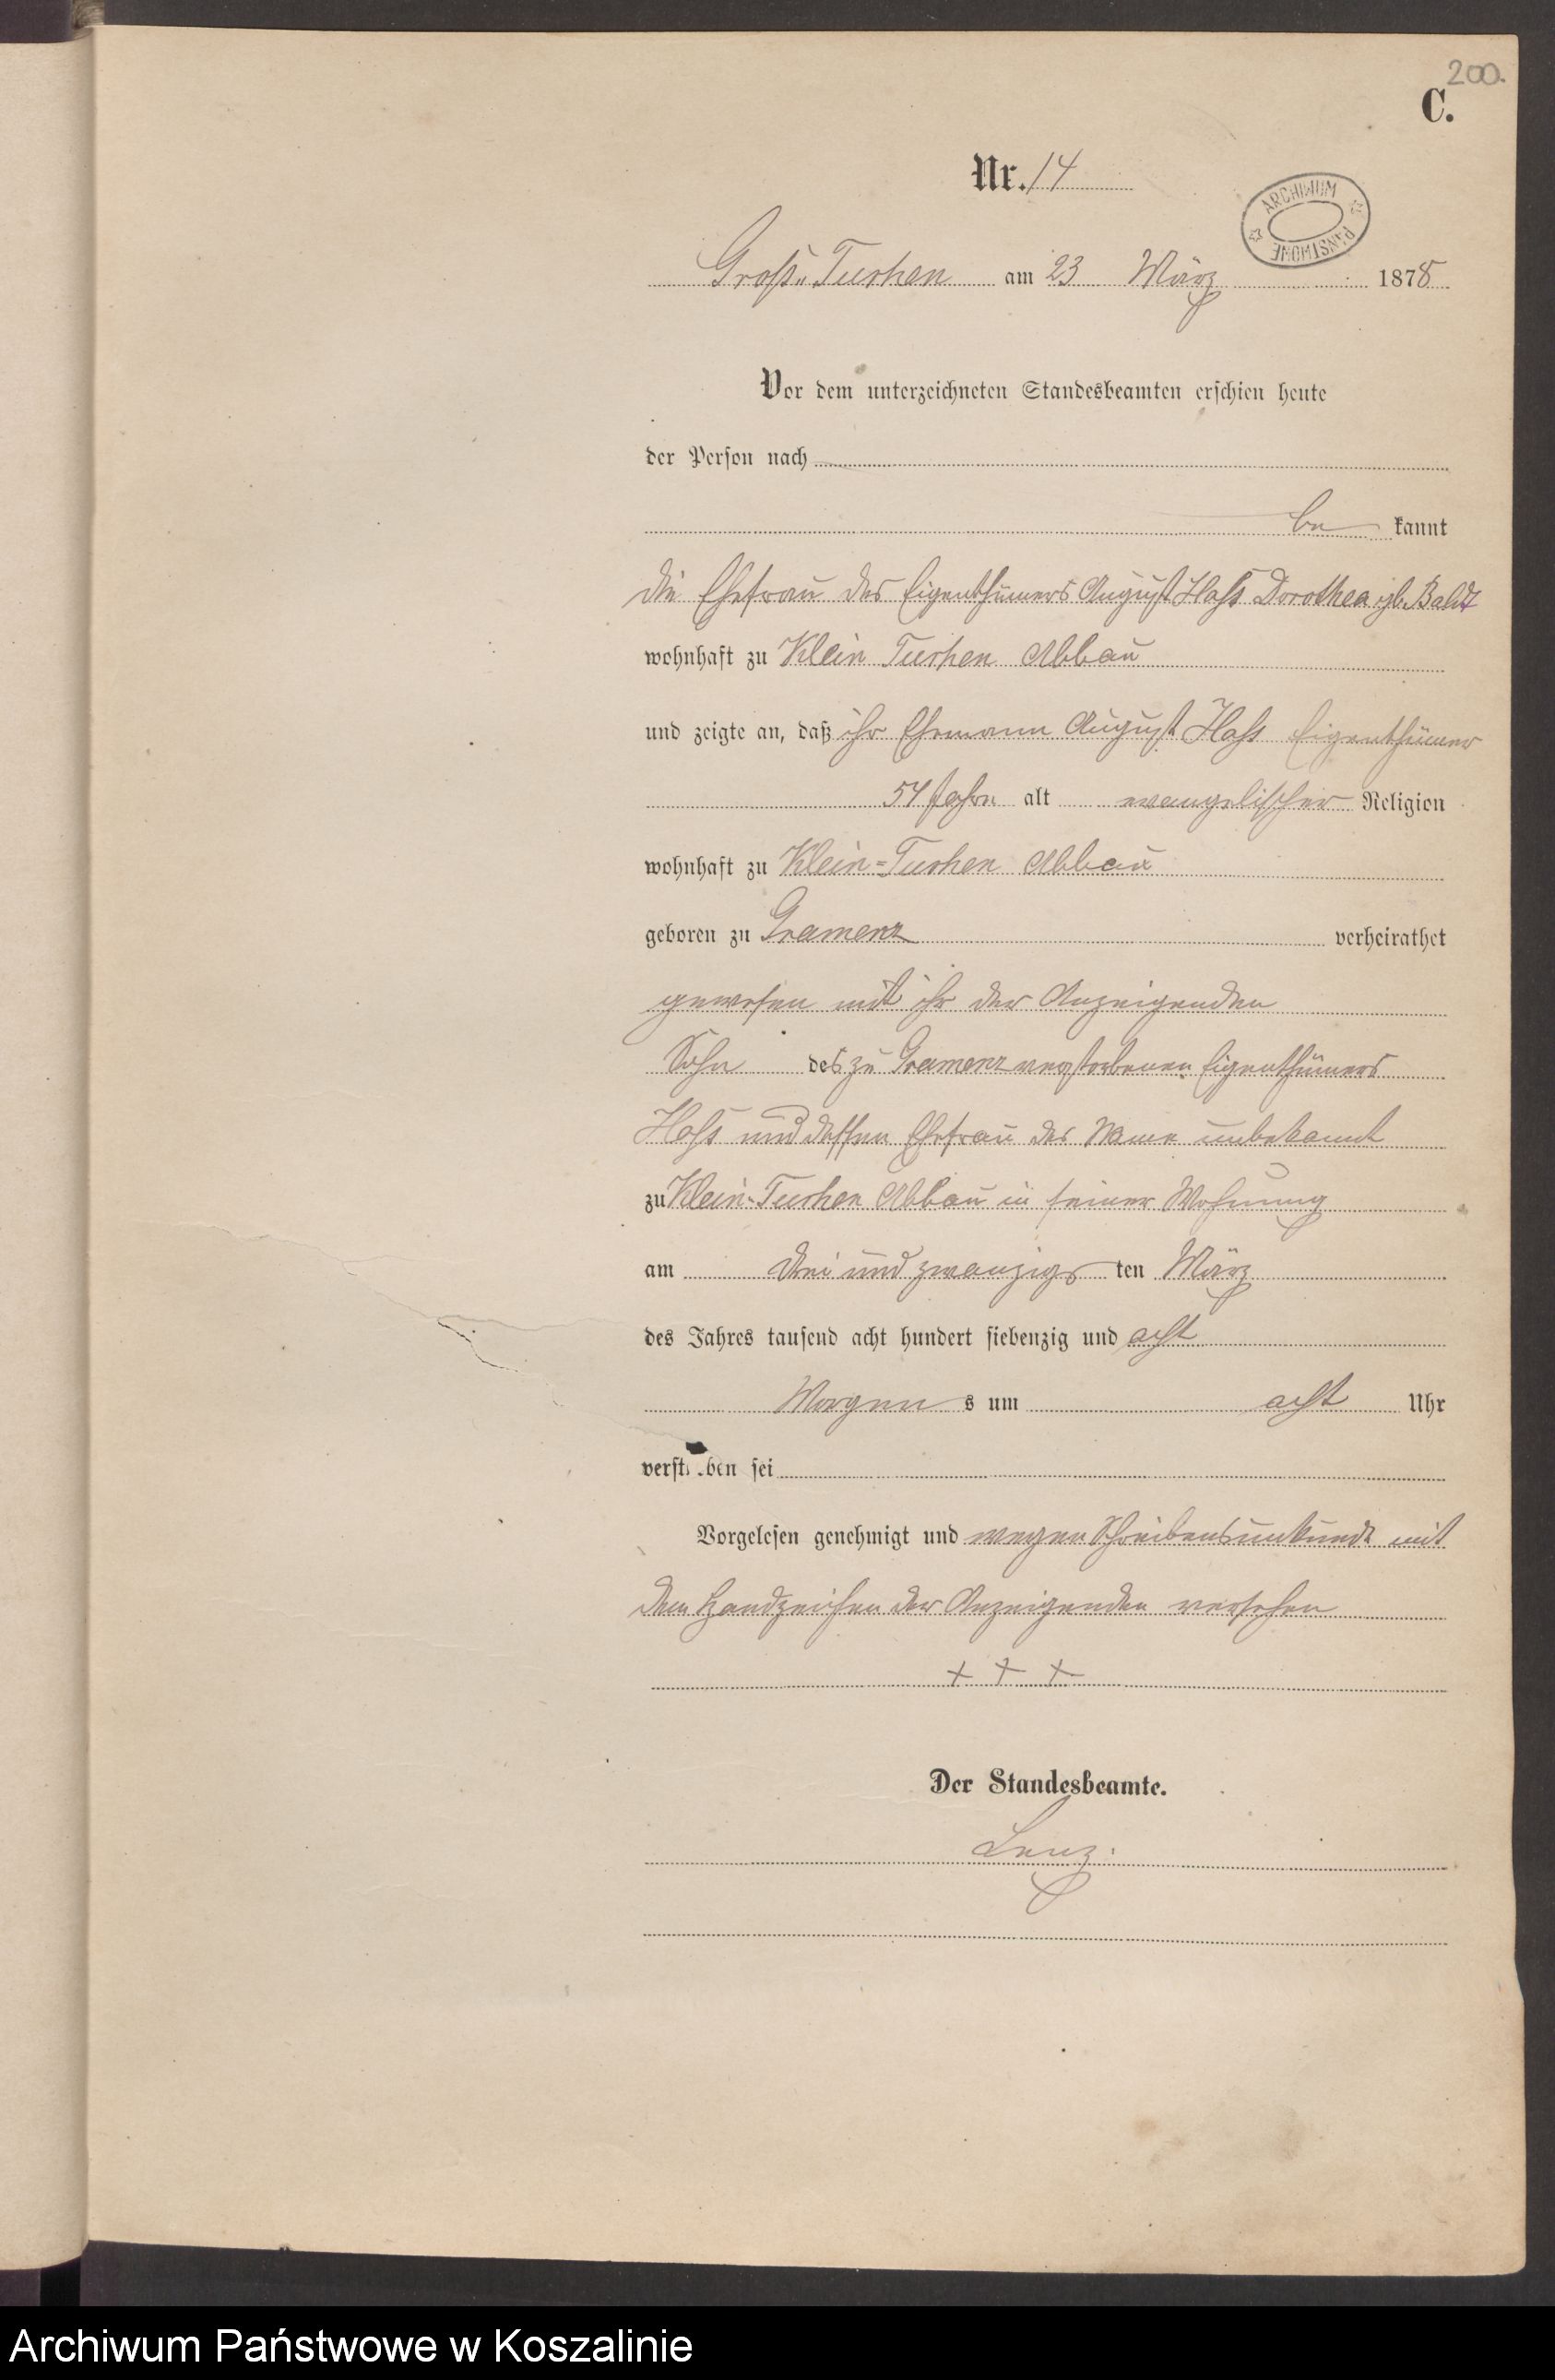 200.
C.
Nr. 14
ARCHIWUM PAŃSTWOWE
Groß-Tuchen am 23 März 1878
Vor dem unterzeichneten Standesbeamten erschien heute
der Person nach
be kannt
die Ehefrau des Eigenthümers August Hass Dorothea geb. Baldt
wohnhaft zu Klein Tuchen Abbau
und zeigte an, daß ihr Ehemann August Hass Eigenthümer
54 Jahre alt evangelischer Religion
wohnhaft zu Klein-Tuchen Abbau
geboren zu Gramenz verheirathet
gewesen mit ihr der Anzeigenden
Sohn des zu Gramenz verstorbenen Eigenthümers
Hass und dessen Ehefrau der Name unbekannt
zu Klein-Tuchen Abbau in seiner Wohnung
am drei und zwanzigs ten März
des Jahres tausend acht hundert siebenzig und acht
Morgen s um acht Uhr
verst ben sei
Vorgelesen genehmigt und wegen Schreibensunkunde mit
dem Handzeichen der Anzeigenden versehen
+ + +
Der Standesbeamte.
Lenz.
Archiwum Państwowe w Koszalinie